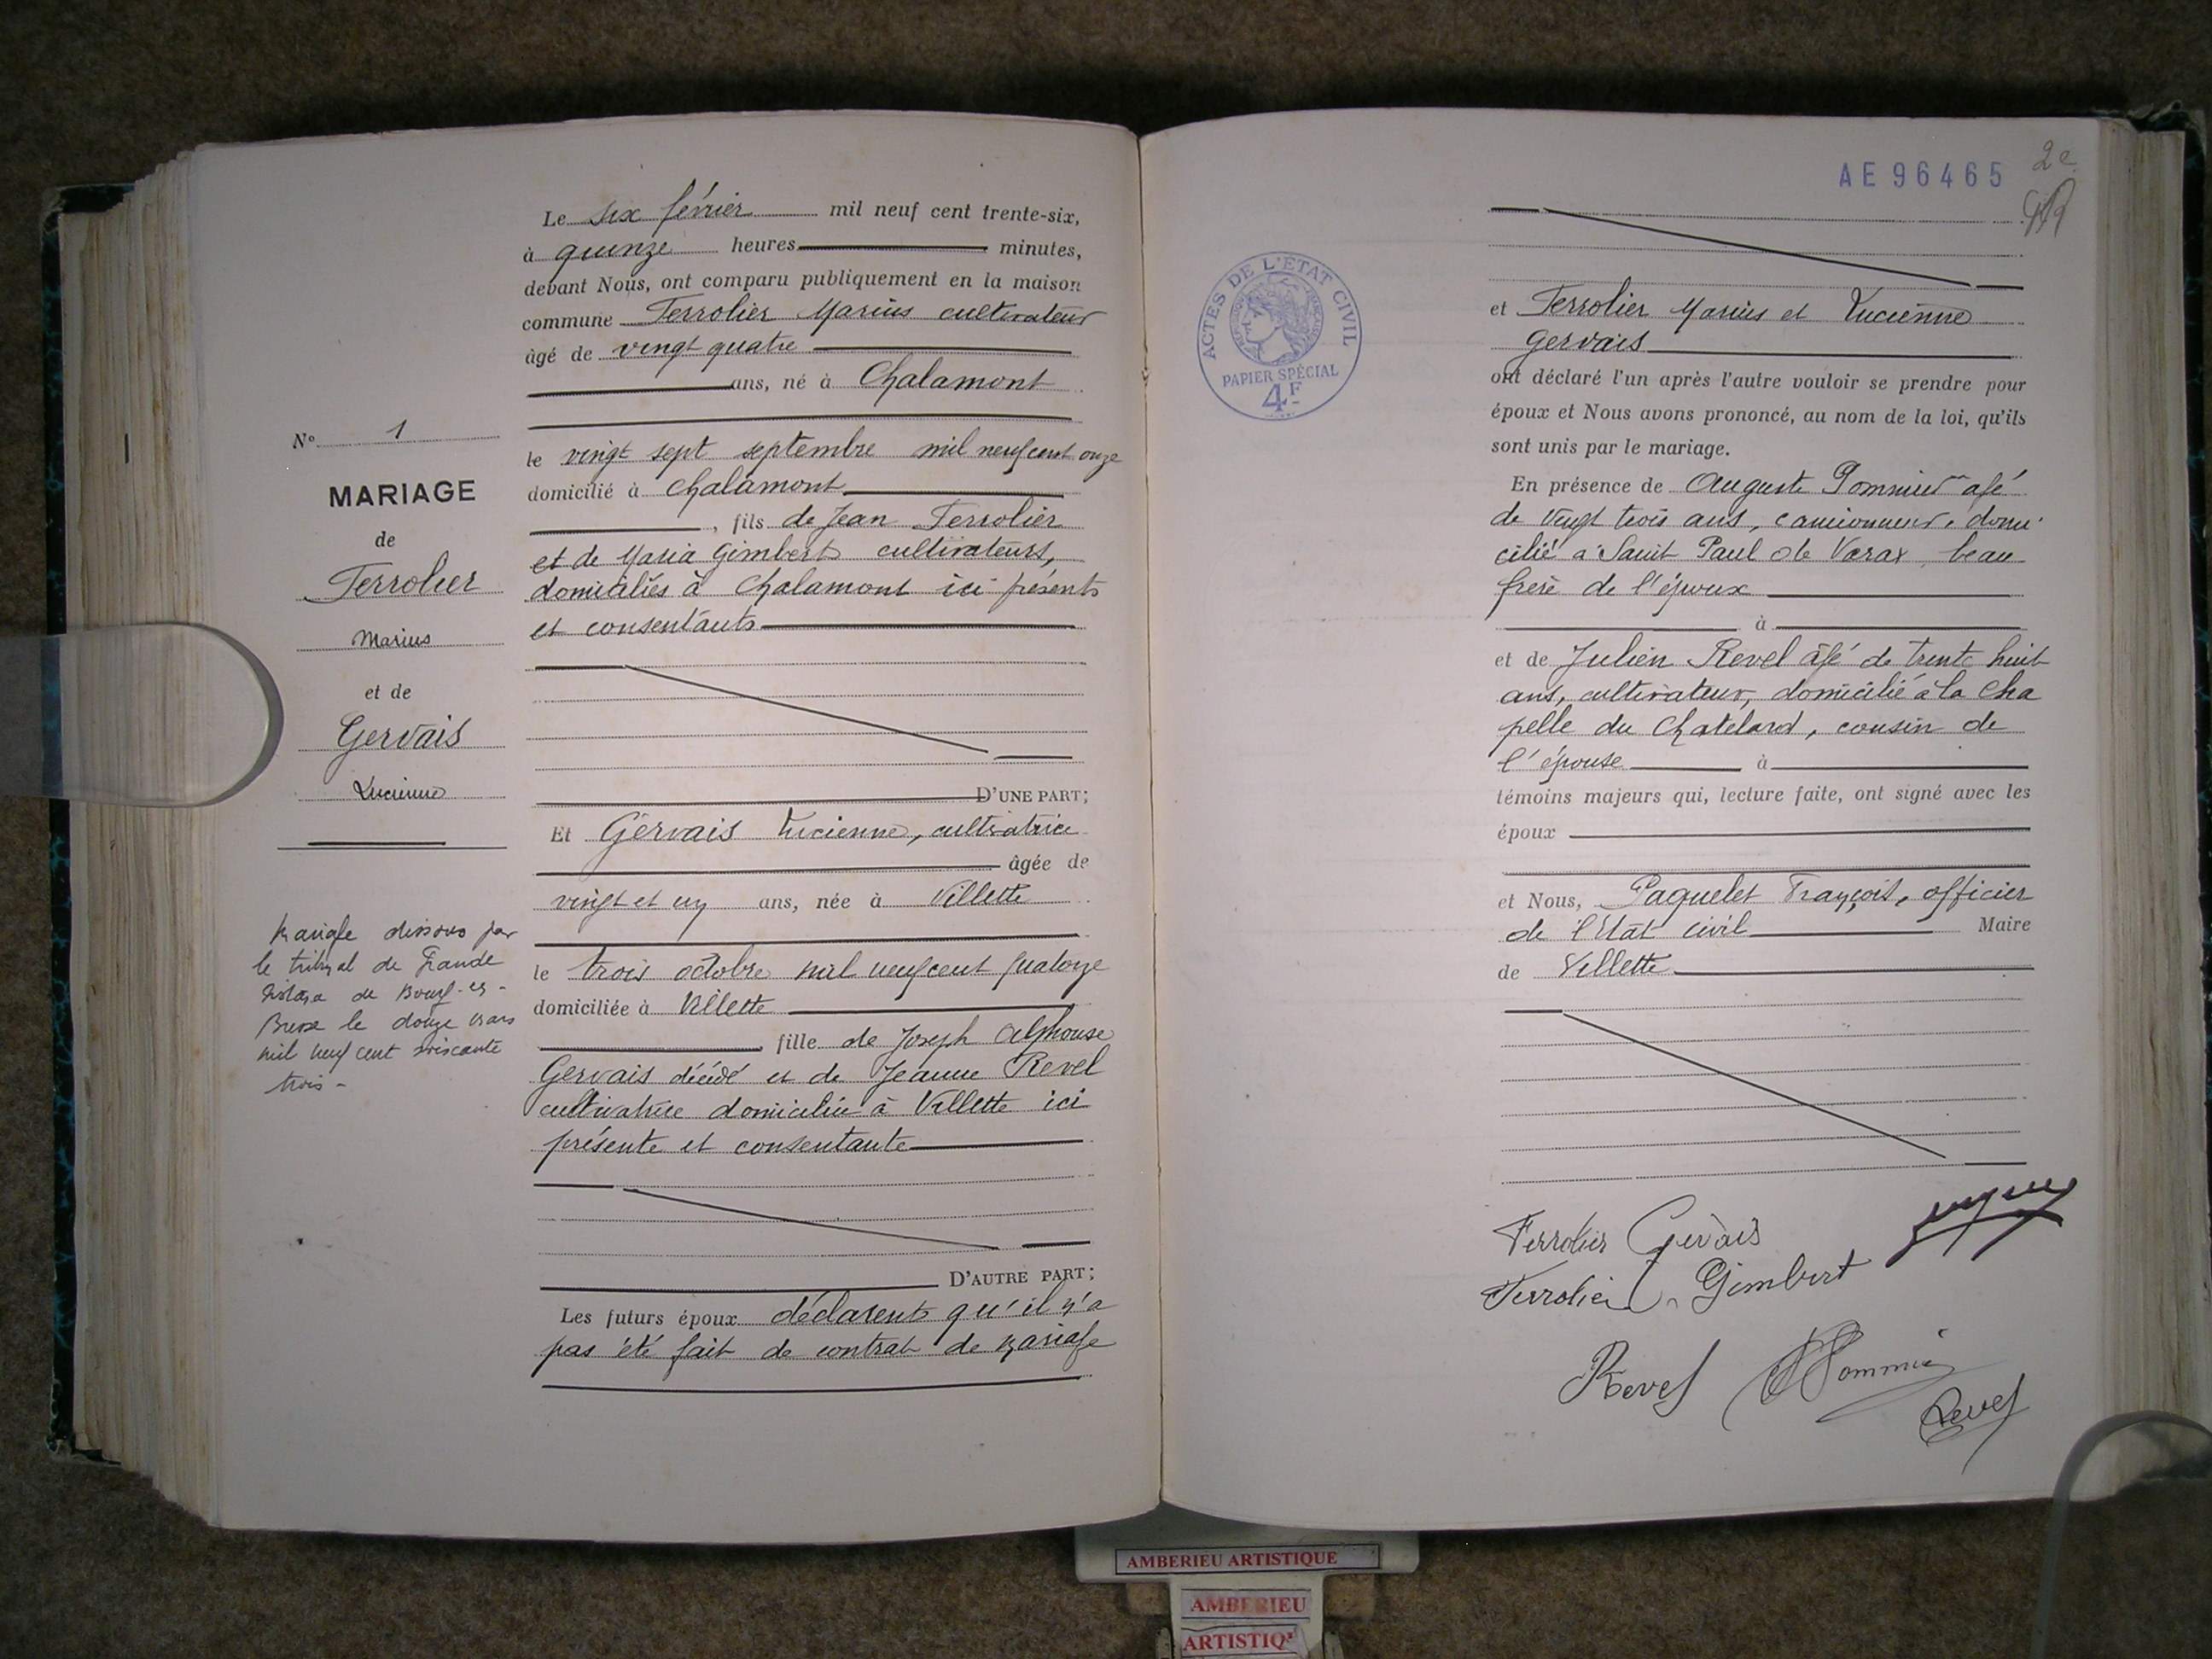 Le six février mil neuf cent trente-six,
à quinze heures minutes,
devant Nous, ont comparu publiquement en la maison
commune Ferrolier Marius cultivateur
âgé de vingt quatre
ans, né à Chalamont
le vingt sept septembre mil neuf cent onze
domicilié à Chalamont
, fils de Jean Ferrolier
et de Maria Gimbert cultivateurs,
domiciliés à Chalamont ici présents
et consentants
D'UNE PART;
Et Gervais Lucienne, cultivatrice
âgée de
vingt et un ans, née à Villette
le trois octobre mil neuf cent quatorze
domiciliée à Villette
, fille de Joseph Alphonse
Gervais décédé et de Jeanne Revel
cultivatrice domiciliée à Villette ici
présente et consentante
D'AUTRE PART;
Les futurs époux déclarent qu'il n'a
pas été fait de contrat de mariage
N° 1
MARIAGE
de
Ferrolier
Marius
et de
Gervais
Lucienne
Mariage dissous par
le tribunal de Grande
Instance de Bourg-en-
Bresse le douze mars
mil neuf cent soixante
trois-
AE 96465
2e
ACTES DE L'ÉTAT CIVIL
PAPIER SPÉCIAL
4F
et Ferrolier Marius et Lucienne
Gervais
ont déclaré l'un après l'autre vouloir se prendre pour
époux et Nous avons prononcé, au nom de la loi, qu'ils
sont unis par le mariage.
En présence de Auguste Pommier âgé
de vingt trois ans, camionneur, domi
cilié à Saint Paul de Varax, beau
frère de l'époux
à
et de Julien Revel âgé de trente huit
ans, cultivateur, domicilié à la Cha
pelle du Chatelard, cousin de
l'épouse à
témoins majeurs qui, lecture faite, ont signé avec les
époux
et Nous, Paquelet François, officier
de l'Etat civil Maire
de Villette
Ferrolier Gervais
Ferrolier Gimbert
Revel Pommier
Revel
AMBERIEU ARTISTIQUE
AMBERIEU
ARTISTIQ